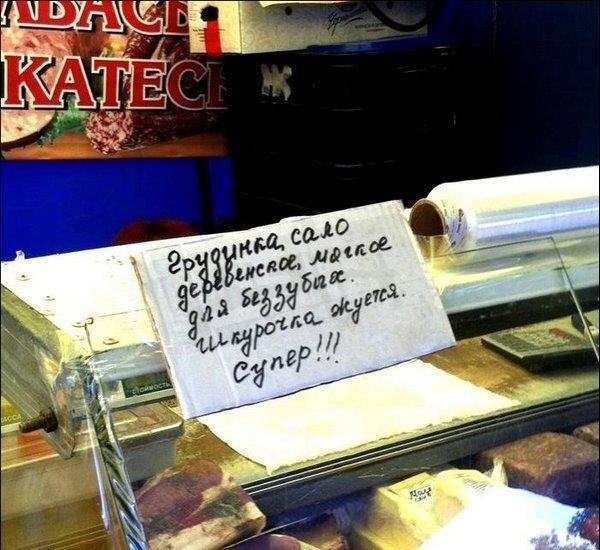 ЛБАСЫ
КАТЕС
Ж
Грудинка, сало
деревенское, мягкое
для беззубых.
Шкурочка жуется.
Супер!!!
СТОИМОСТЬ